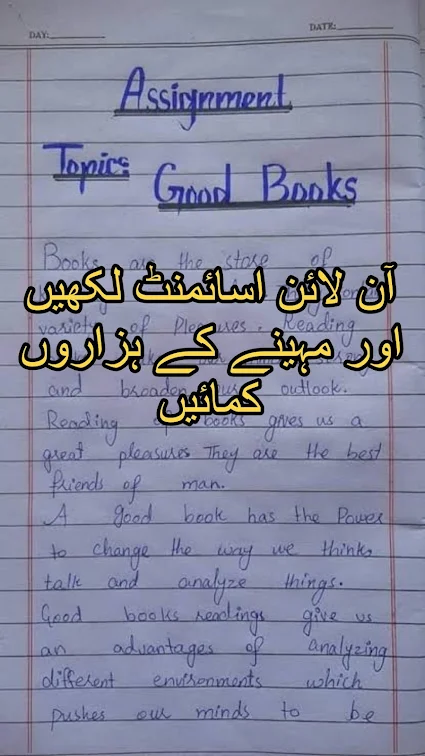 DAY:
DATE:
Assignment
Topic:
Good Books
Books are the store of
آن لائن اسائمنٹ لکھیں
variety of Pleasures. Reading
اور مہینے کے ہزاروں
and broaden our outlook.
کمائیں
Reading of books gives us a
great pleasures They are the best
friends of man.
A good book has the Power
to change the way we think,
talk and analyze things.
Good books readings give us
an advantages of analyzing
different environments which
pushes our minds to be